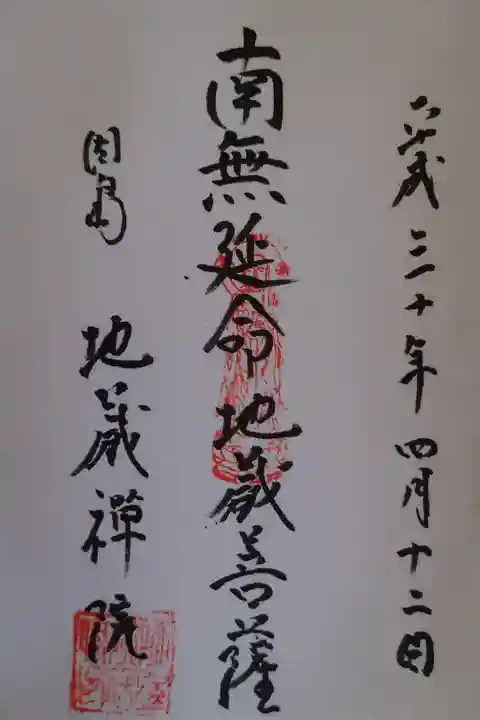 平成三十年四月十二日
南無延命地蔵菩薩
因島 地蔵禪院